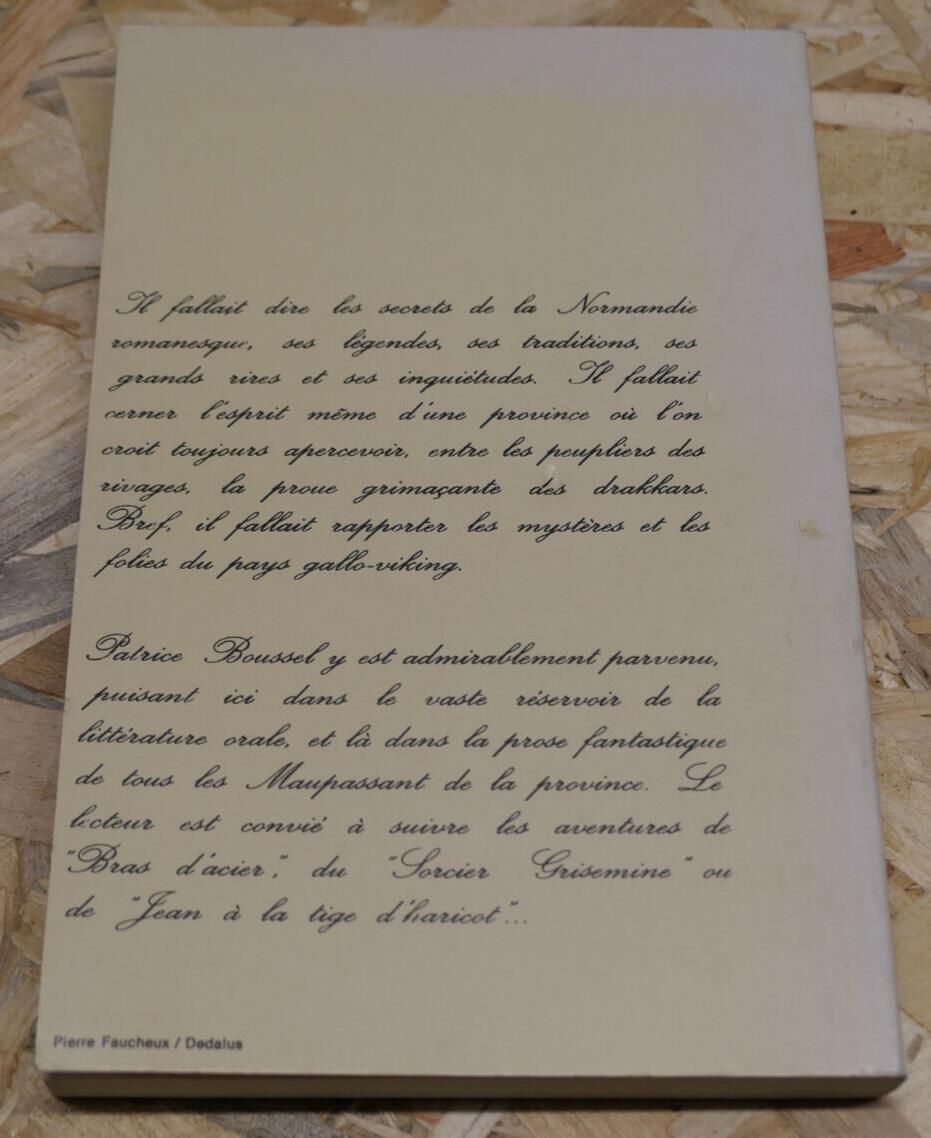 Il fallait dire les secrets de la Normandie
romanesque, ses légendes, ses traditions, ses
grands rires et ses inquiétudes. Il fallait
cerner l'esprit même d'une province où l'on
croit toujours apercevoir, entre les peupliers des
rivages, la proue grimaçante des drakkars.
Bref, il fallait rapporter les mystères et les
folies du pays gallo-viking.
Patrice Boussel y est admirablement parvenu,
puisant ici dans le vaste réservoir de la
littérature orale, et là dans la prose fantastique
de tous les Maupassant de la province. Le
lecteur est convié à suivre les aventures de
"Bras d'acier", du "Sorcier Grisemine" ou
de "Jean à la tige d'haricot"...
Pierre Faucheux / Dedalus